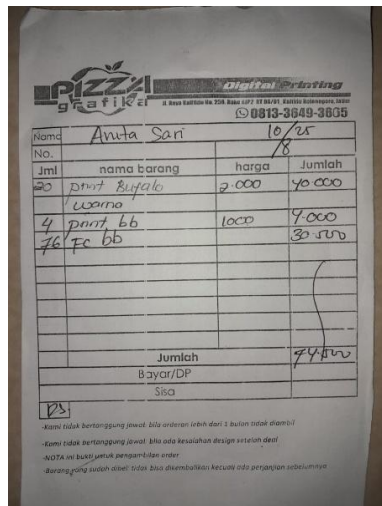 PIZZA
grafika
Digital Printing
0813-3649-3865
Nama Anita Sari 10/25
No. /8
Jml nama barang harga Jumlah
20 print Bufalo 2.000 40.000
warna
4 print bb 1000 4.000
76 Fc bb 30.500
Jumlah 74.500
Bayar/DP
Sisa
-Kami tidak bertanggung jawab bila orderan lebih dari 1 bulan tidak diambil
-Kami tidak bertanggung jawab bila ada kesalahan design setelah deal
-NOTA ini bukti untuk pengambilan order
-Barang yang sudah dibeli tidak bisa dikembalikan kecuali ada perjanjian sebelumnya